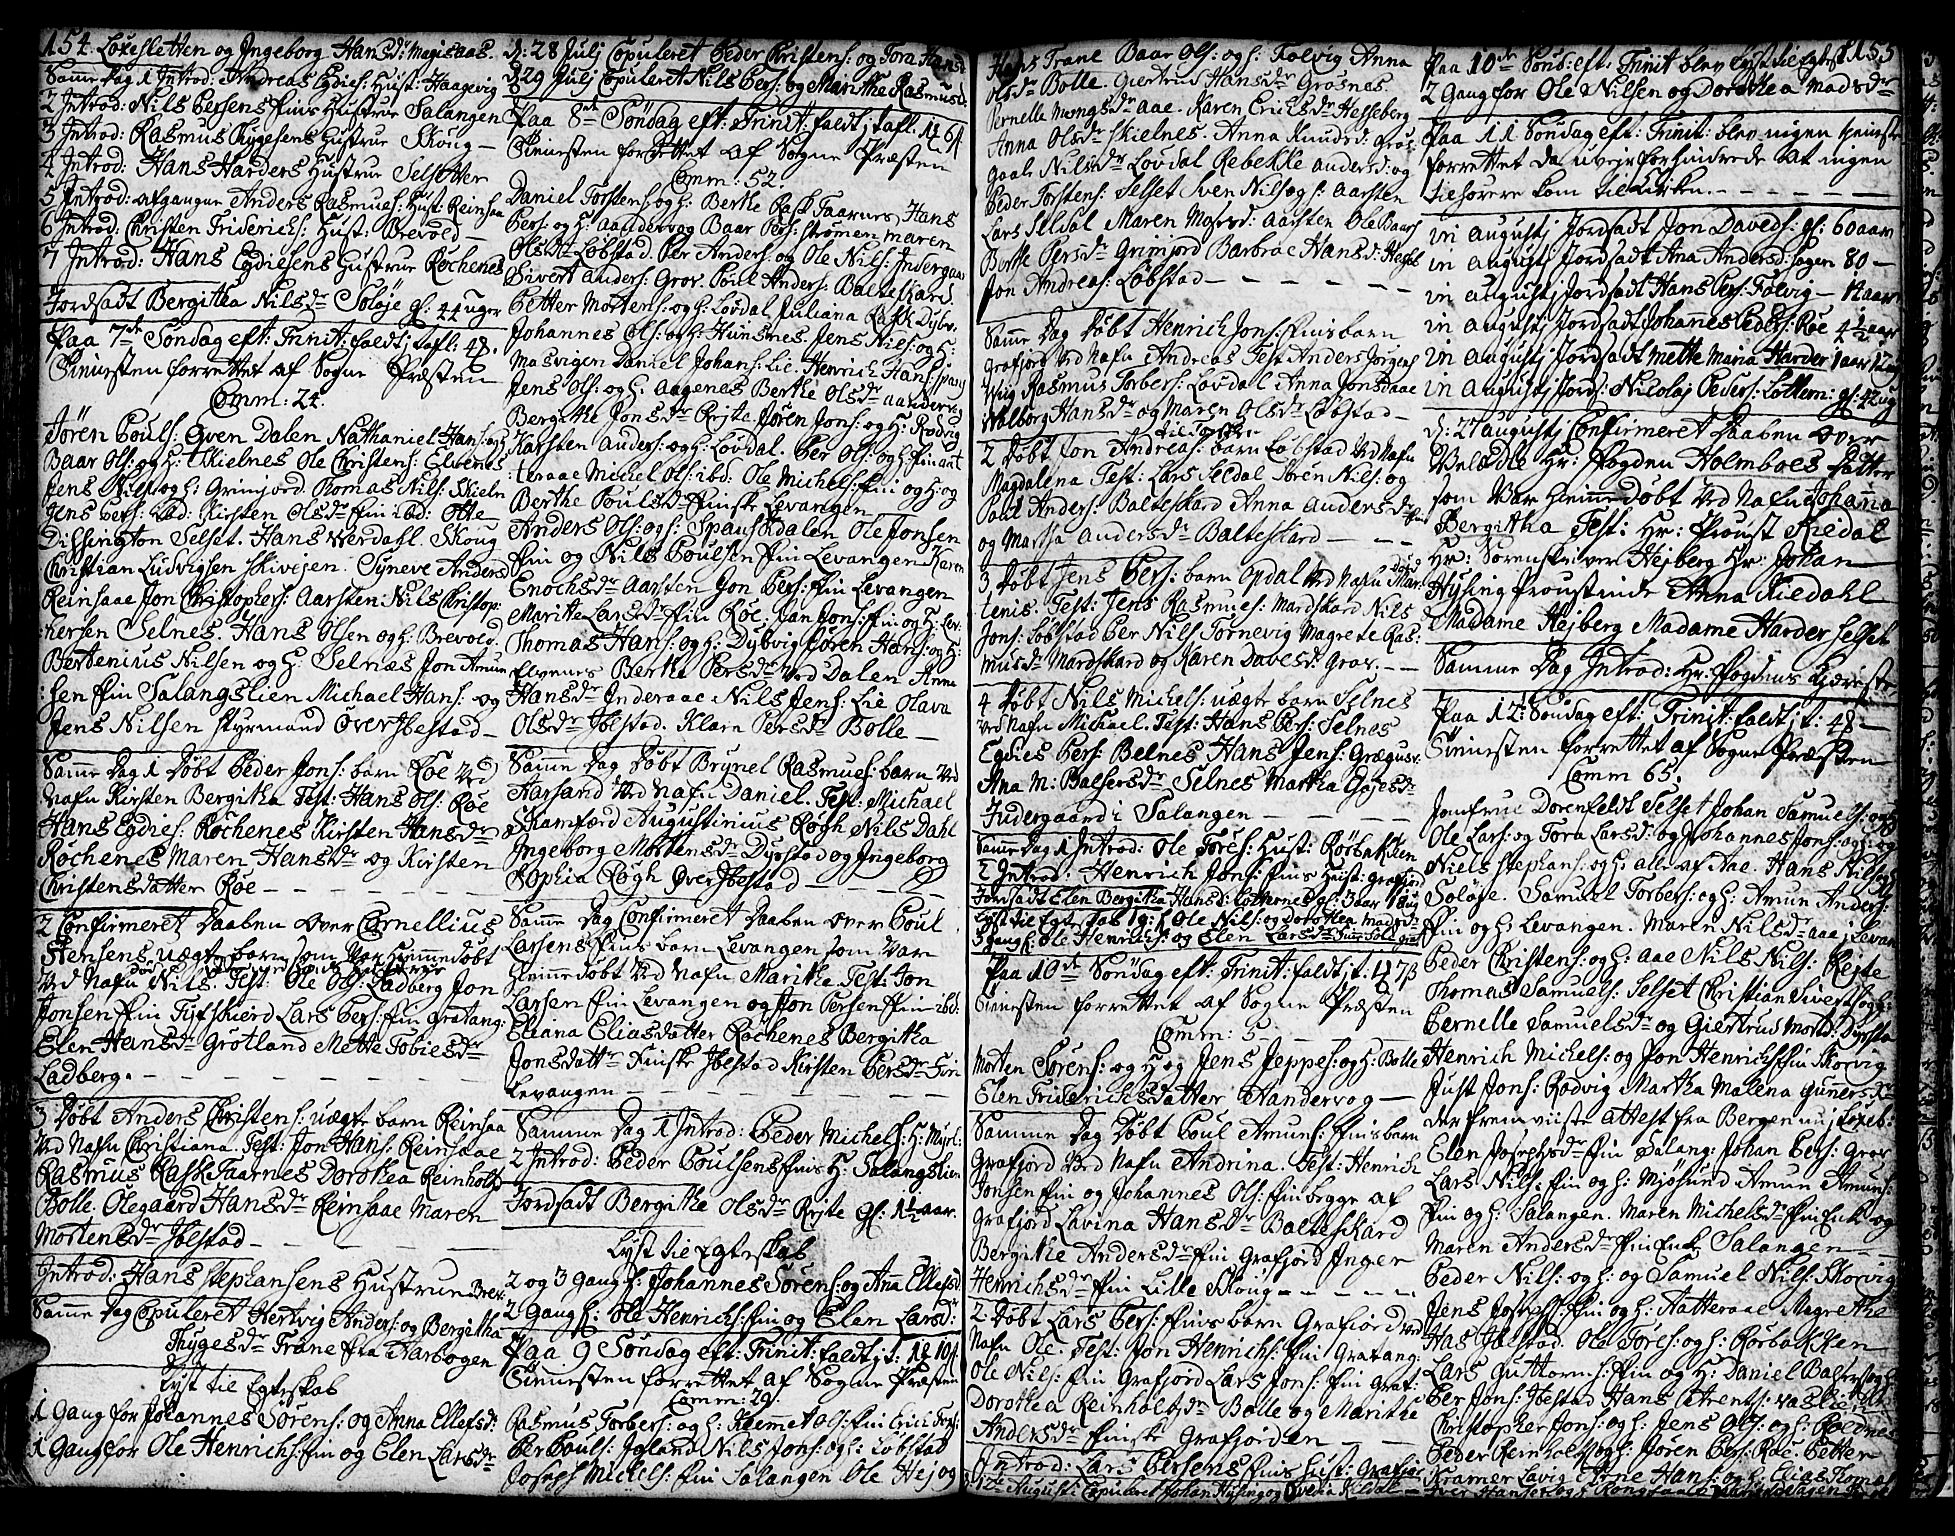 154. Loxesletten og Ingeborg Hansdr Magisaas.
Samme Dag 1 Introd: Andreas Egdies: Hust: Haagevig
2 Introd: Nils Persens fins Hustrue Salangen
3 Introd: Rasmus Thygesens Hustrue Skoug —
4 Introd: Hans Harders Hustrue Selsetter
5 Introd: afgangne Anders Rasmues: Hust: Reinsaa
6 Introd: Christen Friderichs: Hust: Brevold —
7 Introd: Hans Egdiesens Hustrue Rochenes
Jordsadt Bergitha Nilsdr Soløje gl: 44 uger
Paa 7de Søndag eft: Trinit: faldt j tafl: 48.
Tienesten forrettet af Sogne Præsten
Comm: 24.
Jören Pouls: Öven Dalen Nathaniel Hans: og
Baar Ols: og H: Skielnes Ole Christens: Elvenes
Jens Nils: og H: Grimjord Thomas Nils: Skieln
Jens Pers: ibd: Kirsten Olsdr fin ibd: Otte
Dissington Selset. Hans Werdahl. Skoug
Christian Ludvigsen Skivejen. Syneve Anders
Reinsaae Jon Christophers: Aarsten Nils Christop:
hersen Selnes. Hans Olsen og H: Brevold
Bertenius Nilsen og H: Selnæs Jon Amun
sen fin Salangslien Michael Hans: og
Jens Nilsen Styrmand Øver Ibestad —
Samme Dag 1 Døbt Peder Jons: barn Röe ved
Nafn Kirsten Bergitha Test: Hans Ols: Röe
Hans Egdies: Rochenes Kirsten Hansdr
Rochenes Maren Hansdr og Kirsten
Christensdatter Röe —
2 Confirmeret Daaben over Cornellius
Stensens uægte barn som Var Hiemmedøbt
Ved Nafn Nils. Test: Ole Ols: Ladberg Jon
Jonsen fin Tysskierd Lars Pers: fin Gratang:
Elen Hansdr Grotland Mette Tobiesdr
Ladberg. —
3 Døbt Anders Christens: uægt barn Reinsaa
Ved Nafn Christiana. Test: Jon Hans: Reinsaae
Rasmus Rask Taarnes Dorothea Reinholts
Bolle. Olegaard Hansdr Reinsaae Maren
Mortensdr Ibestad —
Introd: Hans Stephansens Hustrue Brev:
Samme Dag Copuleret Hertvig Anders: og Bergitha
Thygesdr Trane fra Aarbogen
Lyst til Egteskab
1 Gang for Johannes Sörens: og Anna Ellefsd:
1 Gang for Ole Henrichs: fin og Elen Larsdr
d: 28 Julj Copuleret Peder Christens: og Tora Hans:
d: 29 Julj Copuleret Nils Pers: og Marithe Rasmusd:
Paa 8de Søndag eft: Trinit: faldt j tafl: 1
Tienesten forrettet af Sogne Præsten
Comm: 52.
Daniel Torstens: og H: Berthe Rask Taarnes Hans
Pers: og H: Aandervog Baar Pers: Strömen Maren
Olsdr Löbstad. Per Anders: og Ole Nils: Indergaar
Sivert Anders: Grov. Poul Anders: Balteskard.
Petter Mortens: og H: Lövdal Juliana Rask Dybv.
Johannes Ols: og H: Hunsnes. Jens Nils: og H:
Masvigen Daniel Johans: Lie. Henrich Hans: Spans
Jens Ols: og H: Aagenes Berthe Olsdr Aandervog
Bergithe Jonsdr Rejte Jören Jons: og H: Rodvig
Karsten Anders: og H: Lövdal. Per Ols: og H: fin
teraae Michel Ols: ibd: Ole Michels: fin og H: og
Berthe Poulsdr Finske Levangen
Anders Ols: og H: Spanskdalen Ole Jonsen
fin og Nils Poulsen fin Levangen Karen
Enochsdr Aarsten Jon Pers: fin Levangen
Marithe Larsdr fin Röe. Jan Jons: fin og H: Lev:
Thomas Hans: og H: Dybvig Jören Hans: og H:
Elvenes Berthe Persdr Ved Dalen Anne
Hansdr Inderaae Nils Jens: Lie Olava
Olsdr Ibestad. Klara Persdr Bolle —
Samme Dag Døbt Brynel Rasmues: barn Ved
Harsand Ved Nafn Daniel. Test: Michael
Schamferd Augustinius Rögh Nils Dahl
Ingeborg Mortensdr Dyrstad og Ingeborg
Sophia Rögh Øver Ibestad —
Samme Dag Confirmeret Daaben over Poul
Larsens fins barn Levangen som Var
Hiemmedøbt Ved Nafn Marithe Test: Jon
Larsen fin Levangen og Jon Persen fin ibd:
Eliana Eliasdatter Rochenes Bergitha
Jonsdattr Finske Ibestad Kirsten Persdr Fin
Levangen —
Samme Dag 1 Introd: Peder Michels: H: Myrl:
2 Introd: Peder Poulsens fins H: Salangslien
Jordsadt Bergithe Olsdr Rejte gl: 1½ aar.
Lyst til Egteskab
2 og 3 Gang f: Johannes Sörens: og Ana Ellefsd
2 Gang f: Ole Henrichs: fin og Elen Larsd:
Paa 9 Søndag eft: Trinit: faldt j t:
Tienesten forrettet af Sogne Præsten
Comm: 29.
Rasmus Torbers: og H: Klemet Ols: fin Erich Tors:
Per Pouls: Joland Nils Jons: og H: Löbstad
Joseph Michels: fin Salangen Ole Hej og
Hans Trane Baar Ols: og H: Rolvig Anna
Olsdr Bolle Giertrud Hansdr Grasnes
Pernelle Mongsdr Aae. Karen Erichsdr Hesseberg
Anna Olsdr Skielnes. Anna Knudsd: Gros:
gaal Nilsdr Lövdal Rebekke Andersd: og
Peder Torstens: Selset Sven Nils: og H: Aarsten
Lars Seldal Maren Mogsd: Aarsten Ole Baars
Berthe Persdr Grimjord Barbrae Hansd:
Jon Andreas: Löbstad —
Samme Dag Døbt Henrich Jons: fins barn
Grafjord Ved Nafn Andreas Test: Anders Jörgens
Wiig Rasmus Torbers: Lövdal Anna Jonsd: aae
Walborg Hansdr og Maren Olsdr Löbstad —
2 Døbt Jon Andreas: barn Löbstad Ved Nafn
Magdalena Test: Lars Seldal Sören Nils: og
Poul Anders: Balteskard Anna Andersdr
og Martha Andersdr Balteskard —
3 Døbt Jens Pers: barn Opdal Ved Nafn Mar
tenis. Test: Jens Rasmues: Mardskard Nils
Jons: Löbstad Per Nils: Tornevig Magrete Ras:
musdr Mardskard og Karen Davesd: Grov. —
4 Døbt Nils Michels: uægte barn Selnes
Ved Nafn Michael. Test: Hans Pers: Selnes
Egdies Pers: Belnes Hans Jens: Grægusv:
Ana M: Balsersdr Selnes Martha Gojesdr
Indergaard i Salangen —
Samme Dag 1 Introd: Ole Törels: Hust: Rörbakken
2 Introd: Henrich Jons: fins Hust: Grafjord
Jordsadt Elen Bergitha Hansd: Lothernes gl: 3 aar 18 ug
Lyst til Egteskab 1 g: f: Ole Nils: og Dorothea Madsdr
3 gang f: Ole Henrichs: og Elen Larsdr
Paa 10de Søndag eft: Trinit: faldt j t:
Tienesten forrettet af Sogne Præsten
Comm: 5.
Morten Sörens: og H: og Jens Jeppes: og H: Bolle
Elen Friderichsdatter Aandervog —
Samme Dag Døbt Poul Amuns: fins barn
Grafjord Ved Nafn Andrina. Test: Henrich
Jonsen fin og Johannes Ols: fin begge af
Grafjord Lavina Hansdr Balteskard
Bergithe Andersdr fin Grafjord Inger
Henrichsdr fin Lille Skoug —
2 Døbt Lars Pers: fins barn Grafjord Ved
Nafn Ole. Test: Jon Henrichs: fin Gratang:
Ole Nils: fin Grafjord Lars Jons: fin Graf:
Dorothea Reinholtsdr Bolle og Marithe
Andersdr finske Grafjorden —
Introd: Lars Persens fins Hust: Grafjor
12te Augusti: Copuleret Johan Hysing og
155
Paa 10de Sönd: eft: Trinit blev Lyst til Egtesk:
2 Gang for Ole Nilsen og Dorothea Madsdr
Paa 11 Søndag eft: Trinit: blev ingen tieneste
forrettet da uvejr forhindrede at ingen
tilhörere kom til Kirken. —
in Augustj Jordsadt Jon Daveds: gl: 60 aar
in Augustj Jordsadt Ana Anders: Hogen 80 —
in Augustj Jordsadt Hans Pers: Folvig — 14 aar
in Augustj Jordsadt Johannes Peders: Röe 4½ aar
in Augustj Jordsadt Mette Maria Harder 1 aar 12 ug
in Augustj Jords: Nicolaj Peders: Lottem: gl: 42 ug
d: 27 Augustj Confirmeret Daaben over
Velædle Hr: Fogden Holmboes datter
som Var Hiemmedøbt Ved Nafn Johanna
Bergitha Test: Hr: Proust Kiedal
Hr: Sorenskriver Hejberg Hr: Johan
Hysing Proustinde Anna Kiedahl
Madame Hejberg Madame Harder Selset
Samme Dag Introd: Hr: Fogdens Kjæreste
Paa 12: Søndag eft: Trinit: faldt j t: 48 —
Tienesten forrettet af Sogne Præsten
Comm 65.
Jomfrue Dorenfeldt Selset Johan Samuels: og H
Ole Lars: og Tora Larsd: og Johannes Jons: og H: og
Niels Stephans: og H: alle af Aae. Hans Nils: og
Soløje. Samuel Torbers: og H: Amun Anders:
fin og H: Levangen. Maren Nilsdr Aae j Levan
Peder Christens: og H: Aae Nils Nils: Rejte
Thomas Samuels: Selset Christian Siverts: og H:
Pernelle Samuelsdr og Giertrud Mortd: Dyrsta
Henrich Michels: og Jon Henrichs: fin Skorvig
Just Jons: Rodvig Martha Malena Gunersdr
der fremviiste Attest fra Bergen nu j Loxeb:
Elen Josephsdr fin Salang: Johan Pers: Grov
Lars Nils: fin og H: Mjösund Amun Amuns:
fin og H: Salangen. Maren Michelsdr fin Enk og
Maren Andersdr fin Enk Salangen —
Peder Nils: og H: og Samuel Nils: Skorvig
Jens Josephs: fin og H: Hatteraae Magrethe
Has Ibestad. Ole Törels: og H: Rörbakken
Lars Guttorms: fin og H: Daniel Balsers: og H
Per Jons: Ibestad Hans Arents: Vaslie
Christopher Jons: og H: Jens Ols: og H: Roldnes
Peder Reinholts: og H: Jören Pers: Röe. Petter
Kramer Lavig Arne Hans: og H: Elias Thomas